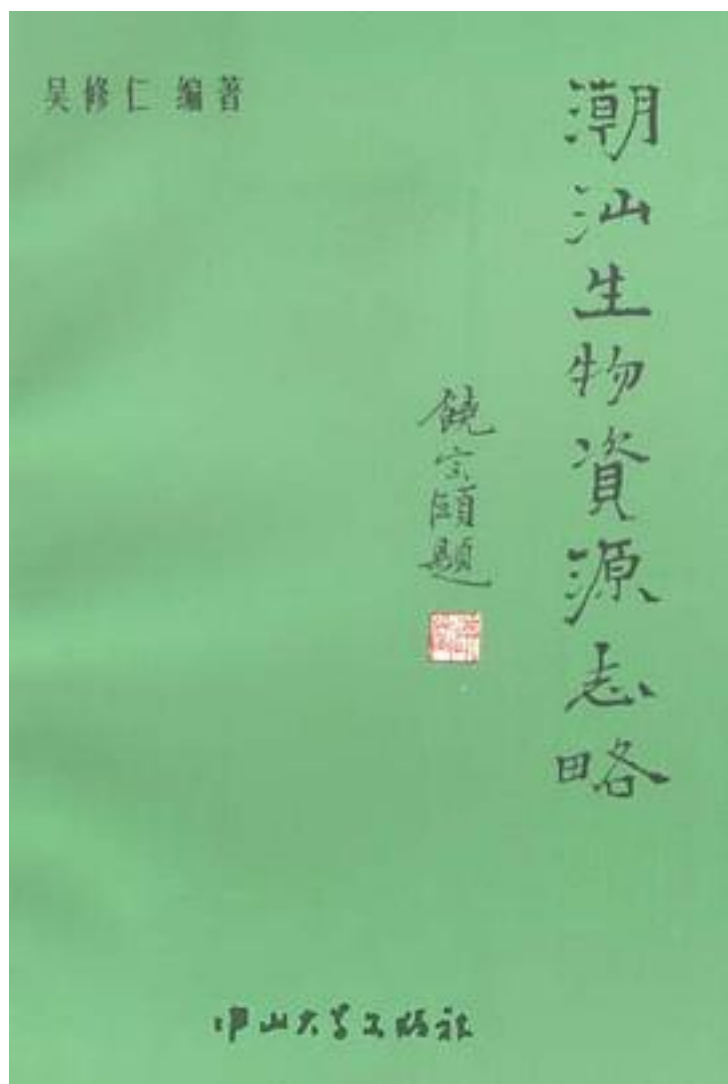 吴修仁 编著
潮汕生物資源志略
饒宗頤題
中山大学出版社